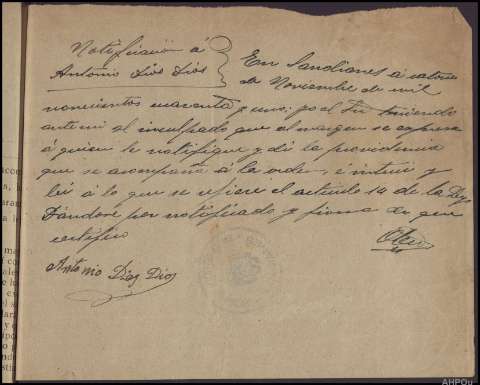 Notificación á
Antonio Dios Dios
En Sandianes á catorce
de Noviembre de mil
novecientos cuarenta y uno; yo el teniendo
ante mi al inculpado que al margen se expresa
á quien le notifique y di la providencia
que se acompaña á la orden, é instruí y
leí á lo que se refiere el articulo 14 de la Ley
Dándose por notificado y firma de que
certifico
Antonio Dios Dios
AHPOu